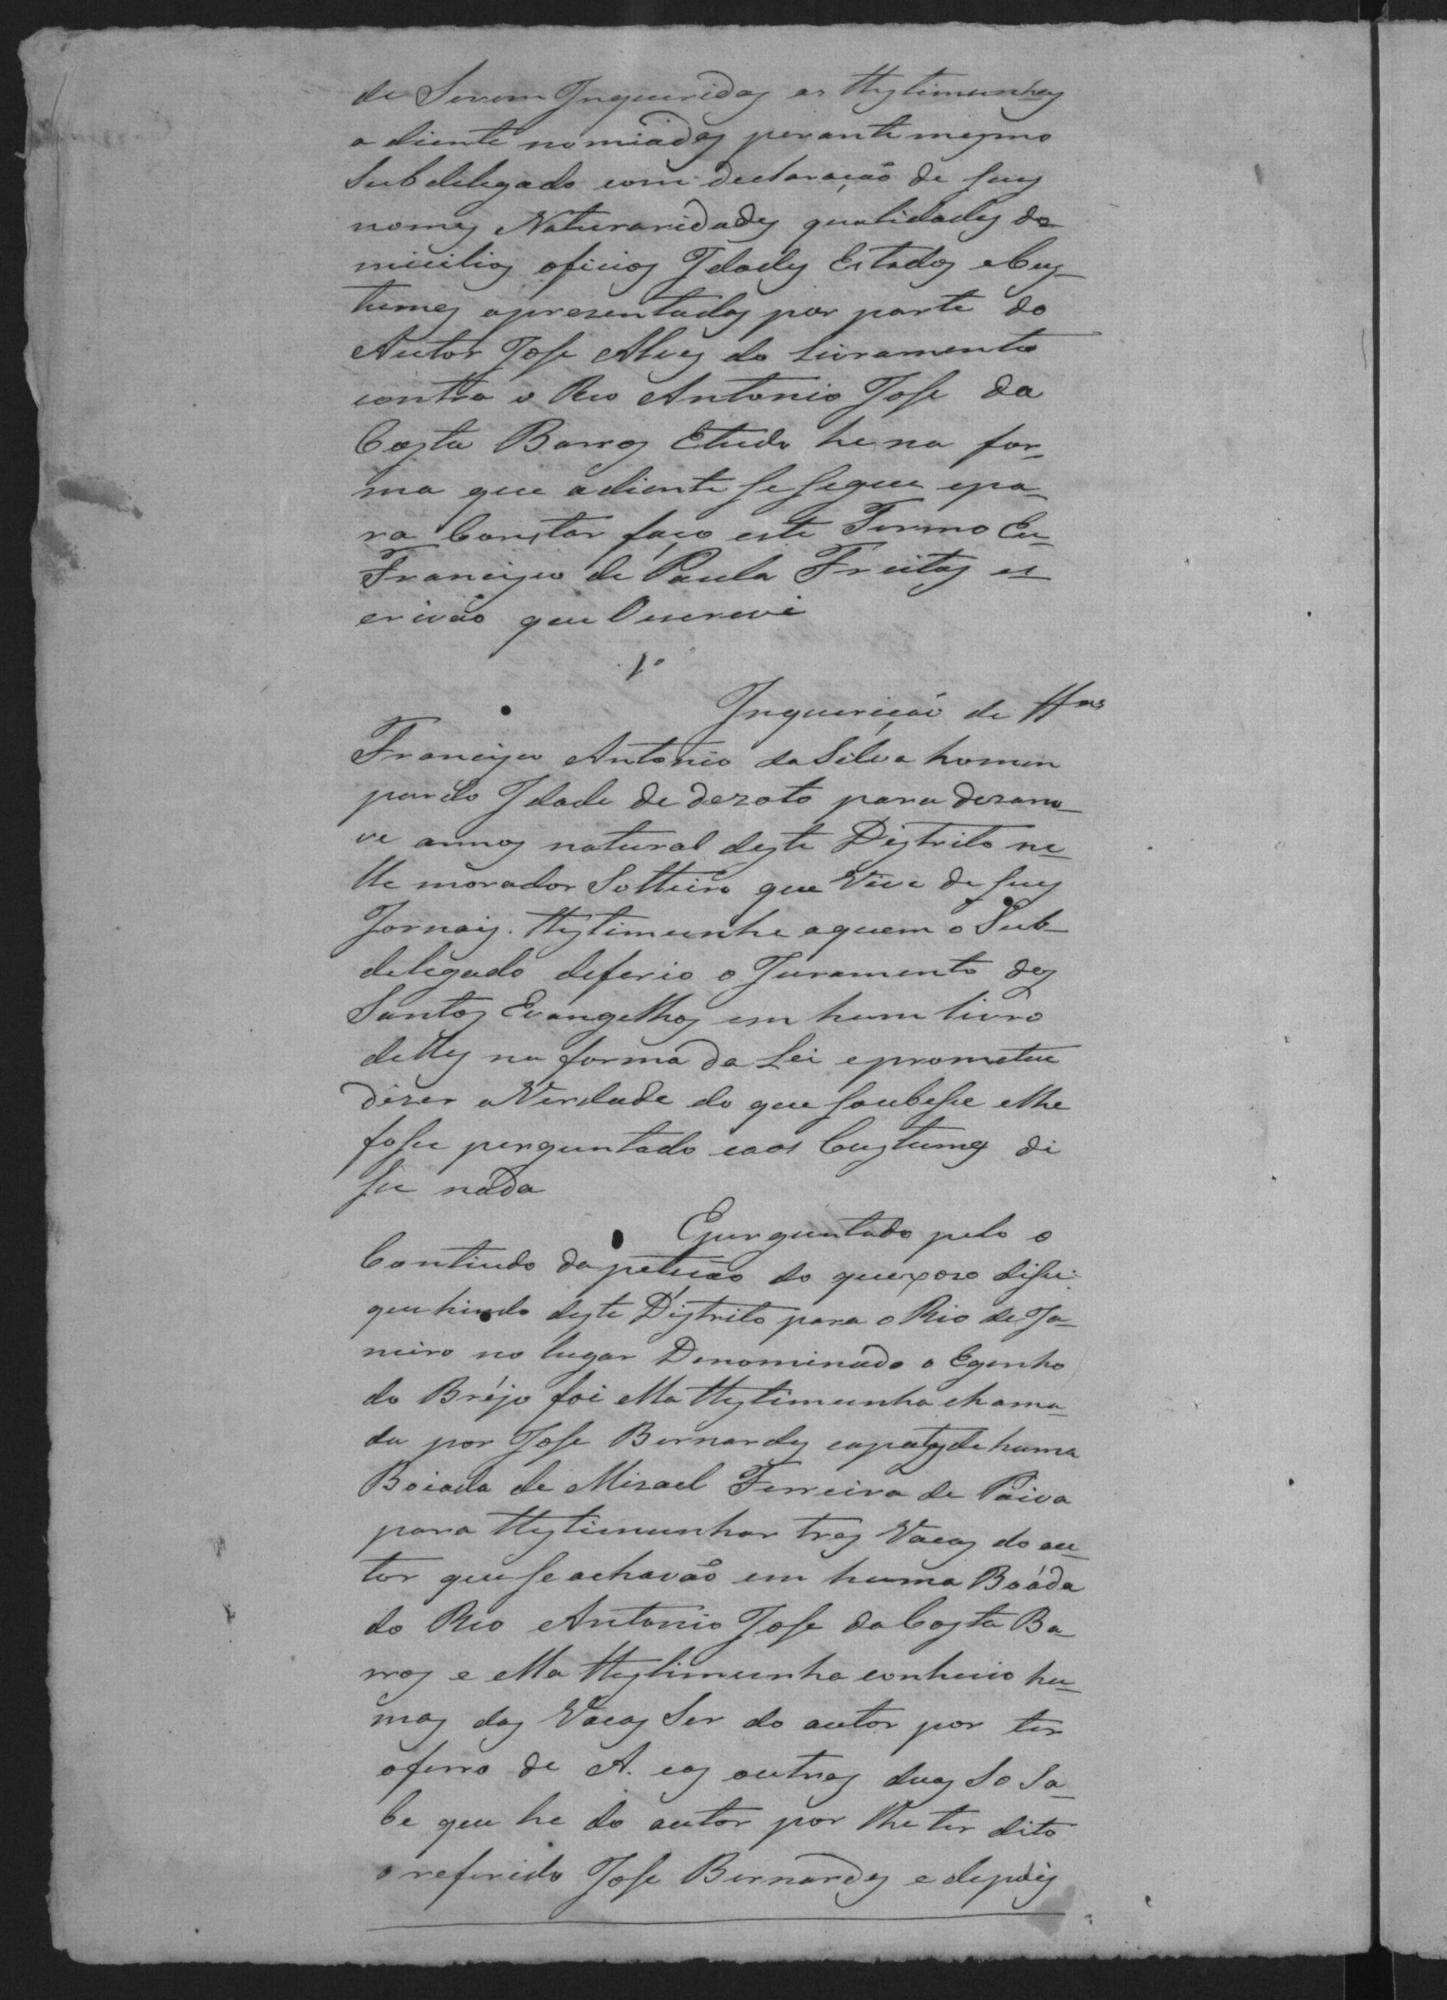 de Serem Inqueridas as ttestimunhas
a diente nomiadas perante mesmo
Subdelegado com declaração de suas
nomes Naturaridades qualidades do
micilios oficios Idades Estados e Cus-
tumes apresentadas por parte do
Autor Jose Alves do Livramento
contra o Reo Antonio Jose da
Costa Barros Etudo he na for-
ma que adiente se segue epa-
ra Constar faço este Termo Eu-
Francisco de Paula Freitas es-
crivão que Oscrevi
1º
Inquerição de ttas
Francisco Antonio da Silva homem
pardo Idade de dezoto para dezano-
ve annos natural deste Destrito ne-
lle morador Solteiro que Vive de seus
Jornais. ttestimunha aquem o Sub-
delegado deferio o Juramento dos
Santos Evangelhos em hum livro
delles na forma da Lei eprometeu
dizer a Verdade do que soubesse elhe
fosse perguntado eaos Custumes di
sse nada
Eperguntado pelo o
Contiudo da petição do queixoso disse:
que hindo deste Destrito para o Rio de Ja-
neiro no lugar Denominado o Egenho
do Bréjo foi ella ttestimunha chama-
da por Jose Bernardes capatas de huma
Boiada de Misael Ferreira de Paiva
para ttestimunhar tres Vacas do au-
tor que se achavão em huma Boáda
do Reo Antonio Jose da Costa Ba-
rros e ella ttestimunha conhecio hu-
mas das Vacas Ser do autor por ter
oferro de A. eas outras duas So Sa-
be que he do autor por lhe ter dito
o referido Jose Bernardes e depois